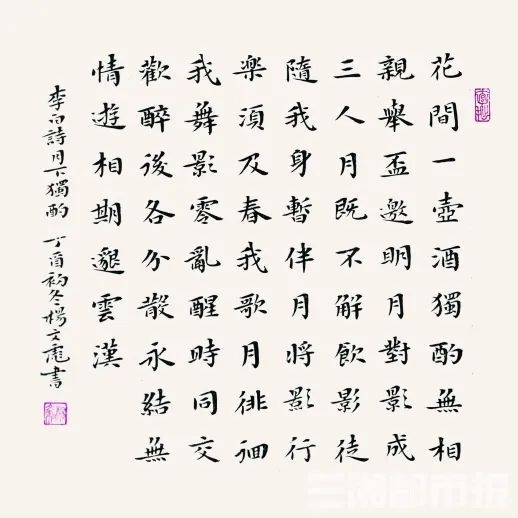 花間一壺酒獨酌無相
親舉盃邀明月對影成
三人月既不解飲影徒
隨我身暫伴月將影行
楽須及春我歌月徘徊
我舞影零亂醒時同交
歡醉後各分散永結無
情遊相期邈雲漢
李白詩月下獨酌 丁酉初冬楊文彪書
三湘都市报